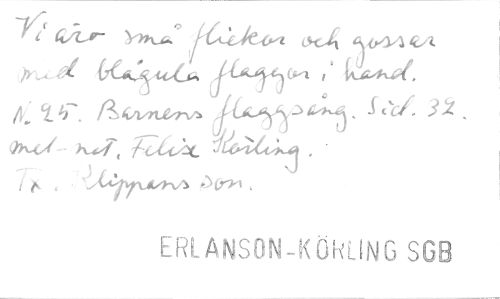 Vi äro små flickor och gossar
med blågula flaggor i hand.
N. 25. Barnens flaggsång. Sid. 32.
mel-not. Felix Körling.
Tx. Klippans son.
ERLANSON-KÖRLING SGB